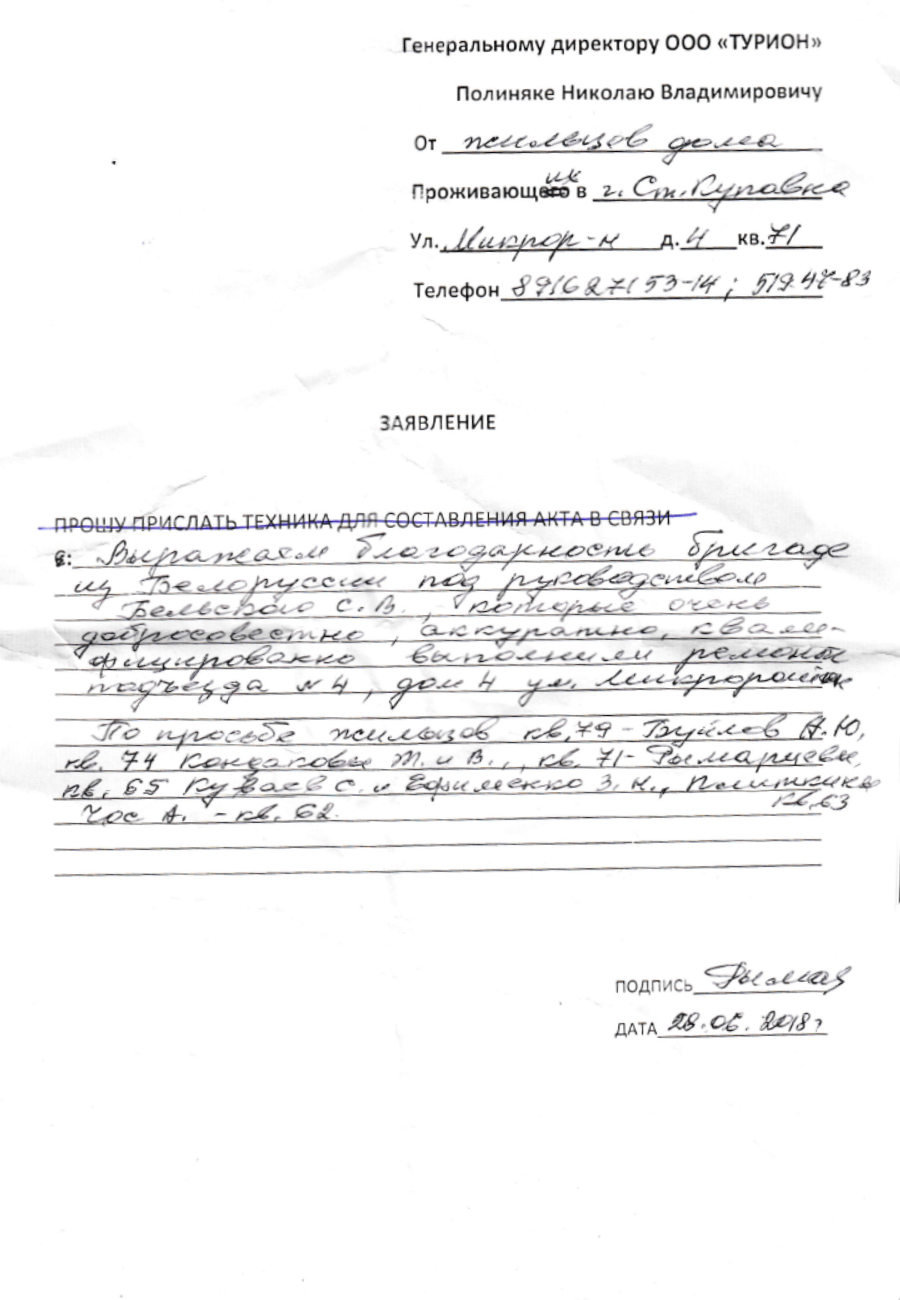 Генеральному директору ООО «ТУРИОН»
Полиняке Николаю Владимировичу
От жильцов дома
Проживающих в г. Ст. Купавна
Ул. Микрор-н д. 4 кв. 71
Телефон 8916 271 53-14; 519 47-83
ЗАЯВЛЕНИЕ
ПРОШУ ПРИСЛАТЬ ТЕХНИКА ДЛЯ СОСТАВЛЕНИЯ АКТА В СВЯЗИ
с: Выражаем благодарность бригаде
из Белоруссии под руководством
Бельского С.В., которые очень
добросовестно, аккуратно, квали-
фицированно выполнили ремонт
подъезда №4, дом 4 ул. Микрорайон
По просьбе жильцов кв. 79 - Буйлов А.Ю,
кв. 74 Кондаковы Т. и В., кв. 71 - Рымарцевы,
кв. 65 Куваев С. и Ефименко З. Н., Политкины
кв. 63
Чос А. - кв. 62.
ПОДПИСЬ
ДАТА 28.06. 2018г